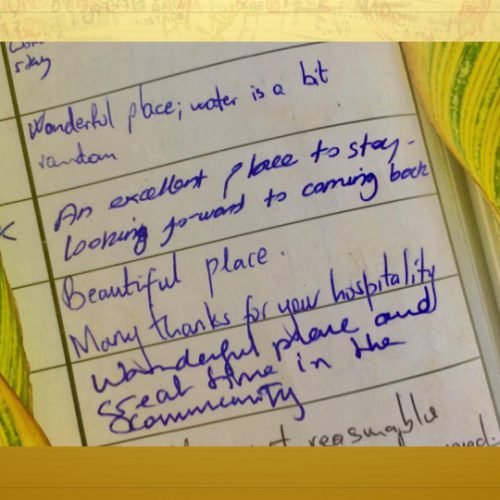 stay
Wonderful place; water is a bit
random
An excellent place to stay -
looking forward to coming back
Beautiful place.
Many thanks for your hospitality
Wonderful place and
great time in the
community
reasonable